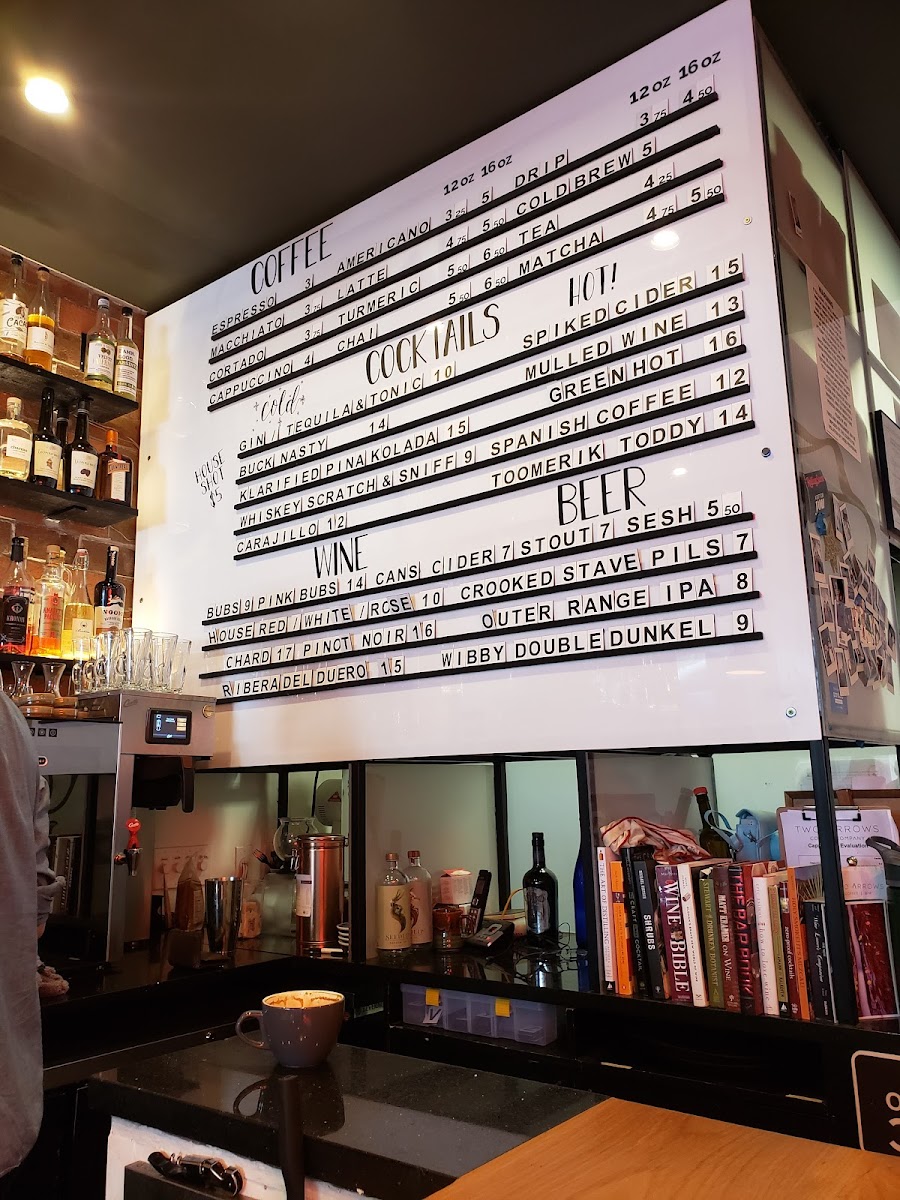 12oz 16oz
12oz 16oz
COFFEE
ESPRESSO 3 AMERICANO 3 25 5 DRIP 3 75 4 50
MACCHIATO 3 75 LATTE 4 75 5 50 COLD BREW 5
CORTADO 3 75 TURMERIC 5 50 6 50 TEA 4 25
CAPPUCCINO 4 CHAI 5 50 6 50 MATCHA 4 75 5 50
COCKTAILS
cold
HOT!
HOUSE
SHOT
$5
GIN // TEQUILA & TONIC 10 SPIKED CIDER 15
BUCK NASTY 14 MULLED WINE 13
KLARIFIED PINA KOLADA 15 GREEN HOT 16
WHISKEY SCRATCH & SNIFF 9 SPANISH COFFEE 12
CARAJILLO 12 TOOMERIK TODDY 14
WINE
BEER
BUBS 9 PINK BUBS 14 CANS CIDER 7 STOUT 7 SESH 5 50
HOUSE RED // WHITE // ROSE 10 CROOKED STAVE PILS 7
CHARD 17 PINOT NOIR 16 OUTER RANGE IPA 8
RIBERA DEL DUERO 15 WIBBY DOUBLE DUNKEL 9
TWO ARROWS
SHRUBS
WINE BIBLE
MATT KRAMER ON WINE